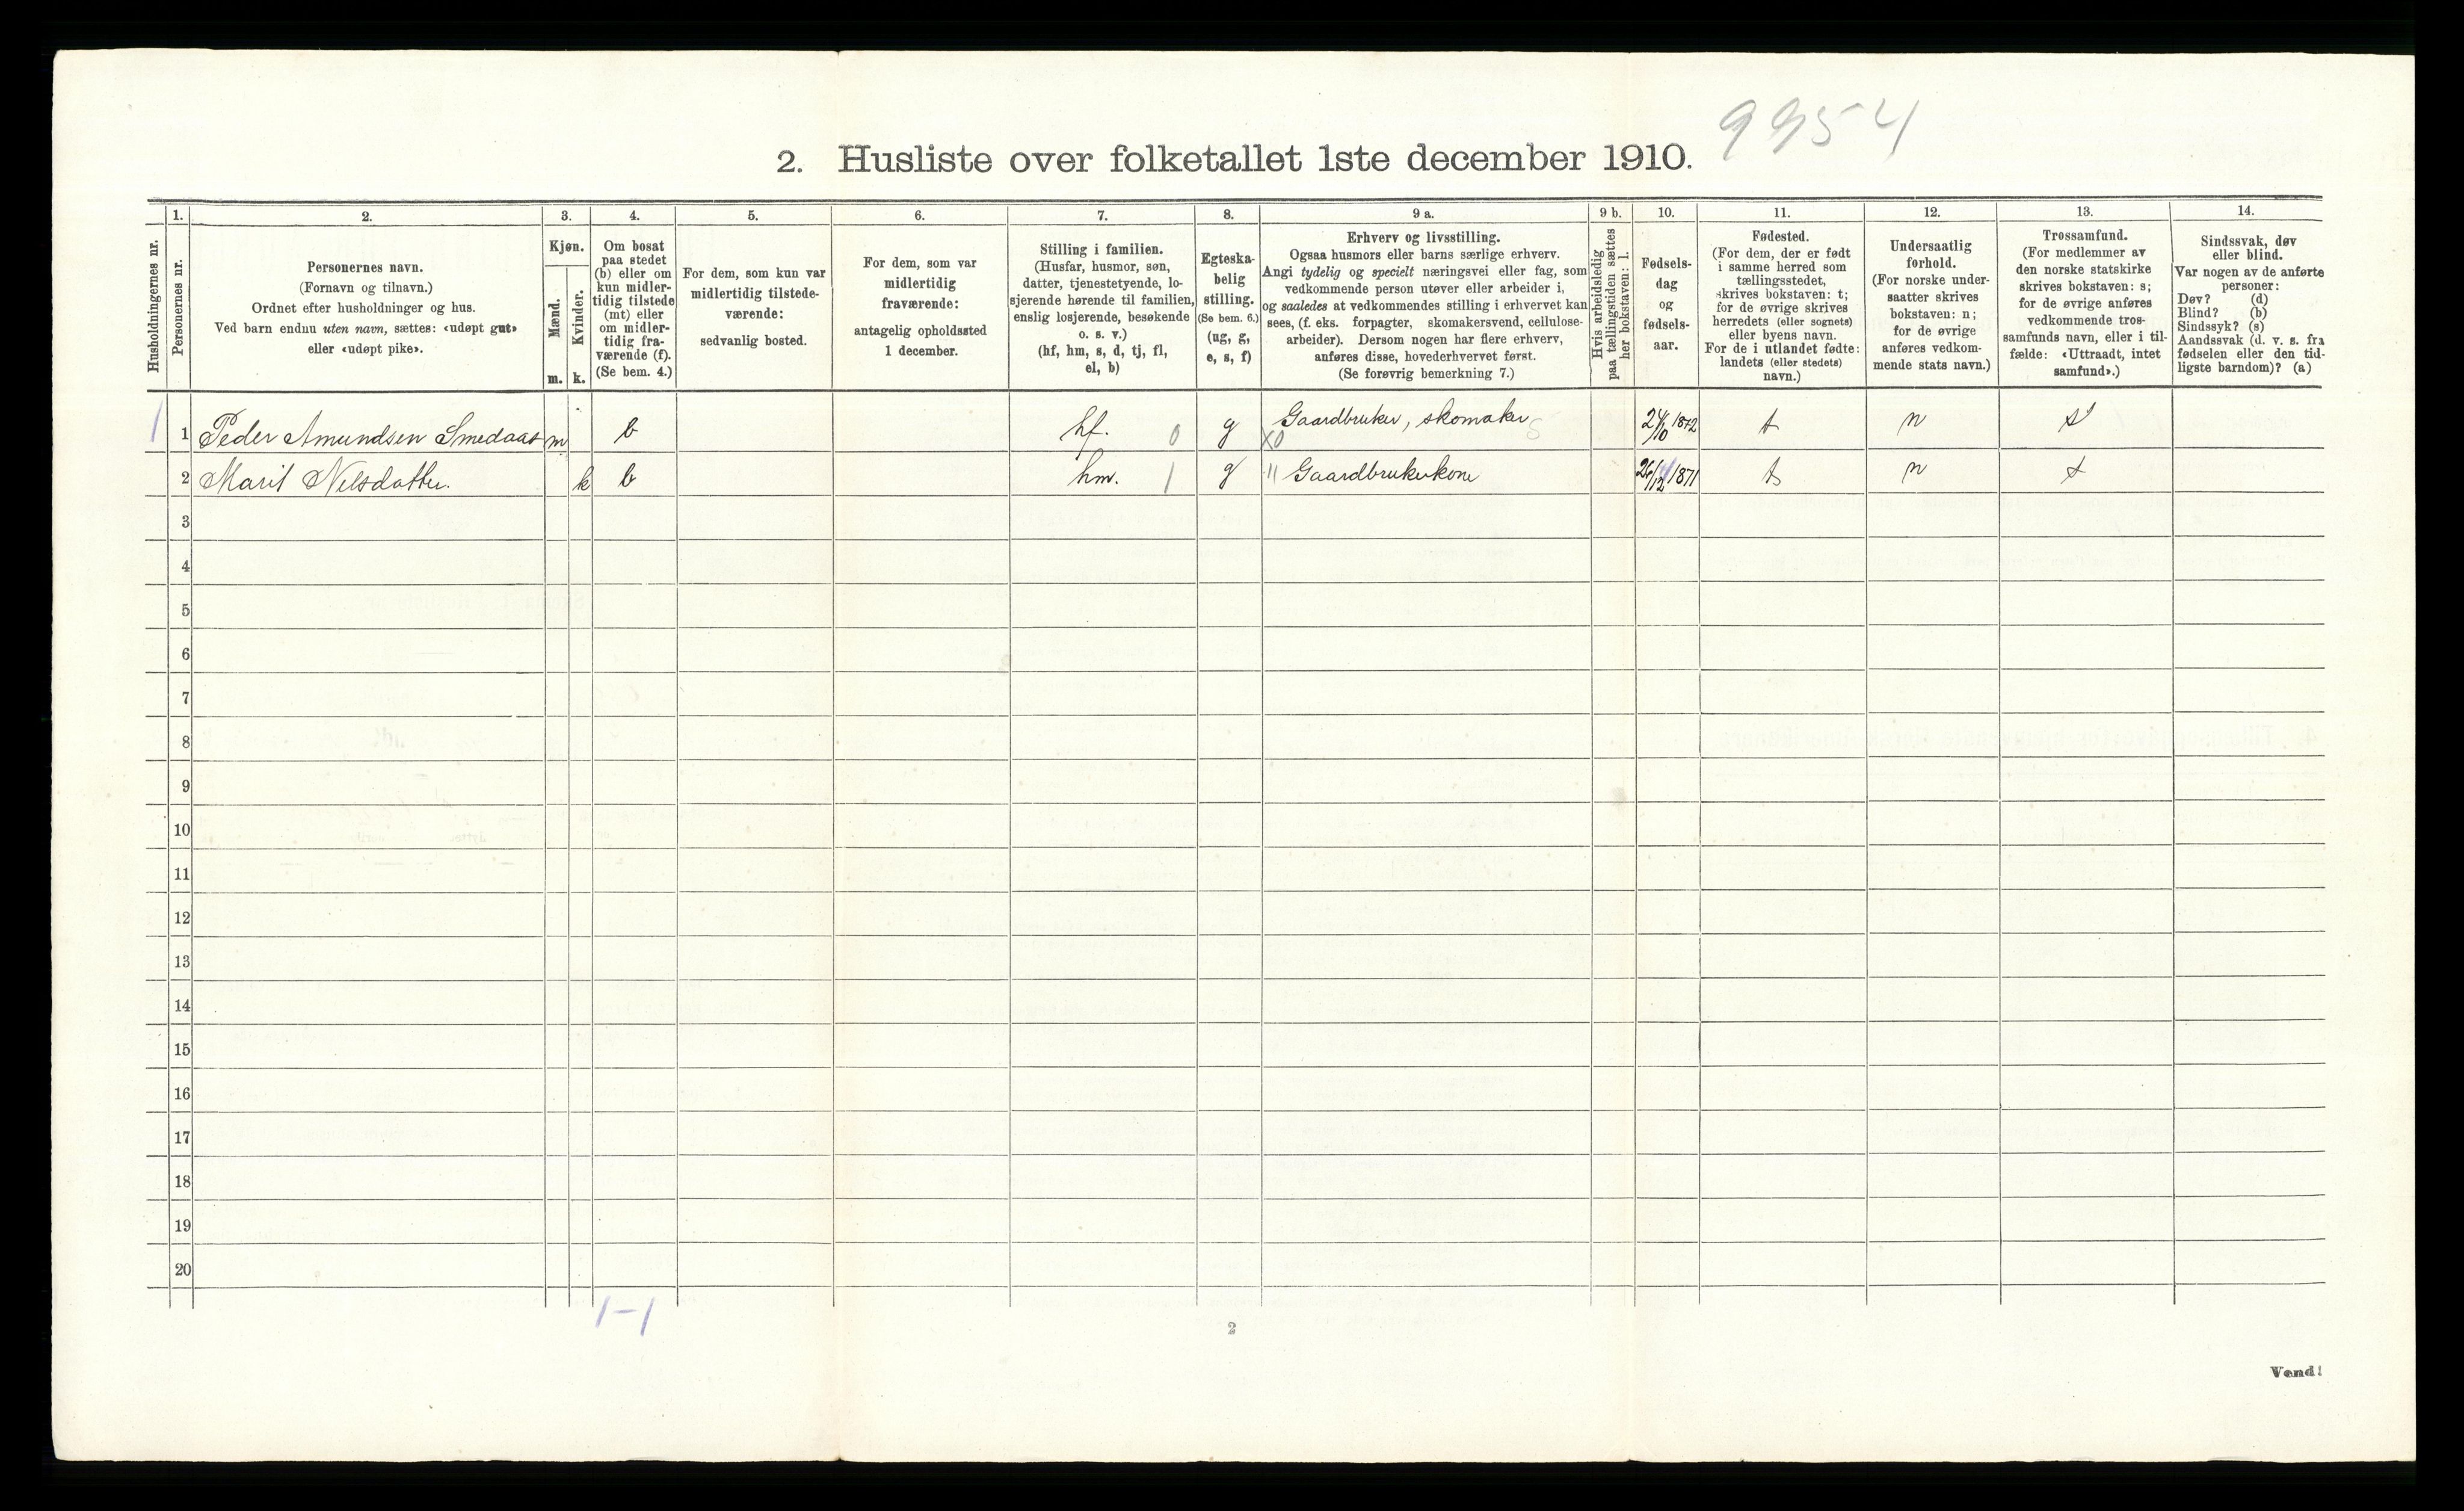 9954
2. Husliste over folketallet 1ste december 1910.
Husholdningernes nr.
1.
Personernes nr.
2.
Personernes navn.
(Fornavn og tilnavn.)
Ordnet efter husholdninger og hus.
Ved barn endnu uten navn, sættes: «udøpt gut»
eller «udøpt pike».
3.
Kjøn.
Mænd.
m.
Kvinder.
k.
4.
Om bosat
paa stedet
(b) eller om
kun midler-
tidig tilstede
(mt) eller
om midler-
tidig fra-
værende (f).
(Se bem. 4.)
5.
For dem, som kun var
midlertidig tilstede-
værende:
sedvanlig bosted.
6.
For dem, som var
midlertidig
fraværende:
antagelig opholdssted
1 december.
7.
Stilling i familien.
(Husfar, husmor, søn,
datter, tjenestetyende, lo-
sjerende hørende til familien,
enslig losjerende, besøkende
o. s. v.)
(hf, hm, s, d, tj, fl,
el, b)
8.
Egteska-
belig
stilling.
(Se bem. 6.)
(ug, g,
e, s, f)
9 a.
Erhverv og livsstilling.
Ogsaa husmors eller barns særlige erhverv.
Angi tydelig og specielt næringsvei eller fag, som
vedkommende person utøver eller arbeider i,
og saaledes at vedkommendes stilling i erhvervet kan
sees, (f. eks. forpagter, skomakersvend, cellulose-
arbeider). Dersom nogen har flere erhverv,
anføres disse, hovederhvervet først.
(Se forøvrig bemerkning 7.)
9 b.
Hvis arbeidsledig
paa tællingstiden sættes
her bokstaven: l.
10.
Fødsels-
dag
og
fødsels-
aar.
11.
Fødested.
(For dem, der er født
i samme herred som
tællingsstedet,
skrives bokstaven: t;
for de øvrige skrives
herredets (eller sognets)
eller byens navn.
For de i utlandet fødte:
landets (eller stedets)
navn.)
12.
Undersaatlig
forhold.
(For norske under-
saatter skrives
bokstaven: n;
for de øvrige
anføres vedkom-
mende stats navn.)
13.
Trossamfund.
(For medlemmer av
den norske statskirke
skrives bokstaven: s;
for de øvrige anføres
vedkommende tros-
samfunds navn, eller i til-
fælde: «Uttraadt, intet
samfund».)
14.
Sindssvak, døv
eller blind.
Var nogen av de anførte
personer:
Døv? (d)
Blind? (b)
Sindssyk? (s)
Aandssvak (d. v. s. fra
fødselen eller den tid-
ligste barndom)? (a)
1 1 Peder Amundsen Smedaas m b hf. 0 g X0 Gaardbruker, skomaker S 24/10 1872 t n s
2 Marit Nilsdatter. k b hm. 1 g " Gaardbrukerkone 26/12 1871 t n s
3
4
5
6
7
8
9
10
11
12
13
14
15
16
17
18
19
20
1-1
2
Vend!